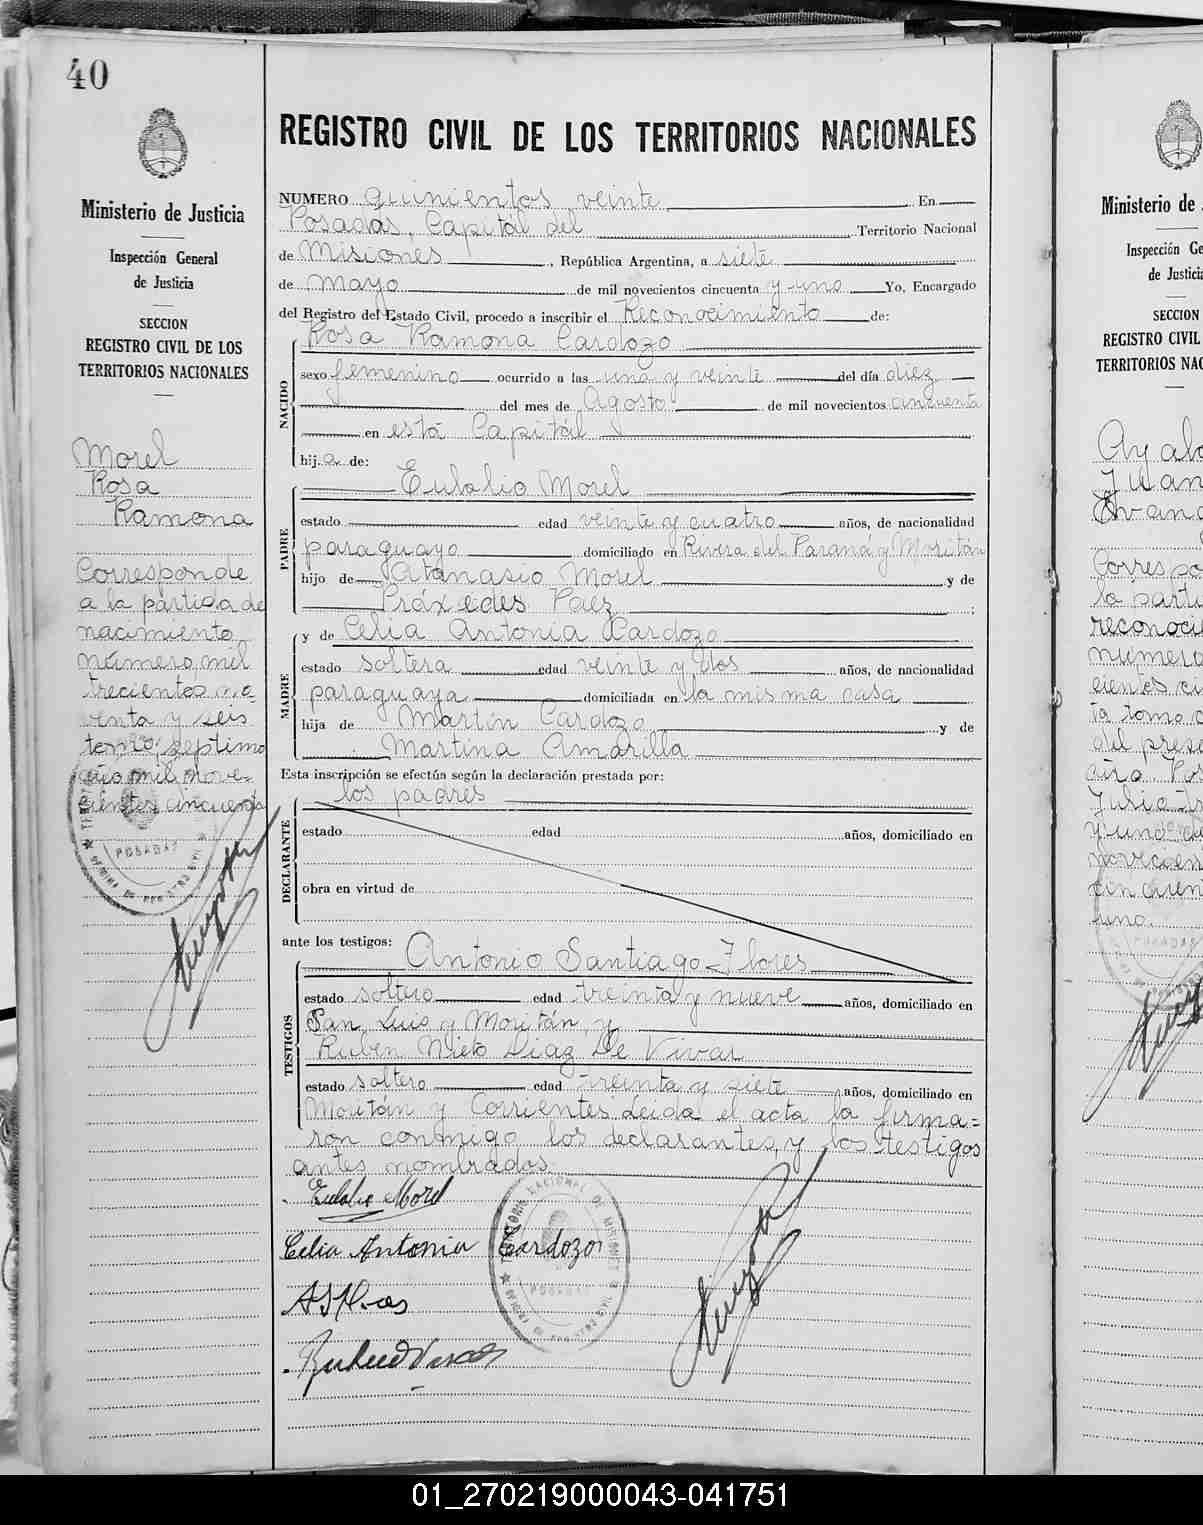 40
Ministerio de Justicia
Inspección General
de Justicia
SECCION
REGISTRO CIVIL DE LOS
TERRITORIOS NACIONALES
Morel
Rosa
Ramona
Corresponde
a la partida de
nacimiento
número mil
trecientos no-
venta y seis
tomo septimo
año mil nove-
cientos cincuenta
POSADAS
REGISTRO CIVIL DE LOS TERRITORIOS NACIONALES
NUMERO quinientos veinte En
Posadas, Capitál del Territorio Nacional
de Misiones, República Argentina, a siete
de mayo de mil novecientos cincuenta y uno Yo, Encargado
del Registro del Estado Civil, procedo a inscribir el Reconocimiento de:
NACIDO
Rosa Ramona Cardozo
sexo femenino ocurrido a las una y veinte del día diez
del mes de Agosto de mil novecientos cincuenta
en está Capitál
hija de:
PADRE
Eulalio Morel
estado edad veinte y cuatro años, de nacionalidad
paraguayo domiciliado en Rivera del Paraná y Moritán
hijo de Atanasio Morel y de
Práxedes Paez ;
MADRE
y de Celia Antonia Cardozo
estado soltera edad veinte y dos años, de nacionalidad
paraguaya domiciliada en la misma casa
hija de Martín Cardozo y de
Martina Amarilla
Esta inscripción se efectúa según la declaración prestada por:
los padres
DECLARANTE
estado edad años, domiciliado en
obra en virtud de
ante los testigos:
TESTIGOS
Antonio Santiago Flores
estado soltero edad treinta y nueve años, domiciliado en
San Luis y Moritán, y
Rubén Nieto Diaz De Vivar
estado soltero edad treinta y siete años, domiciliado en
Moritán y Corrientes Leida el acta la firma=
ron conmigo los declarantes, y los testigos
antes nombrados.
Eulalio Morel
Celia Antonia Cardozo
TERRITORIO NACIONAL DE MISIONES
POSADAS
OFICINA DE REGISTRO CIVIL
Ministerio de
Inspección Ge
de Justicia
SECCION
REGISTRO CIVIL
TERRITORIOS NAC
Ayala
Juan
Corresp
la parti
reconoci
número
01_270219000043-041751